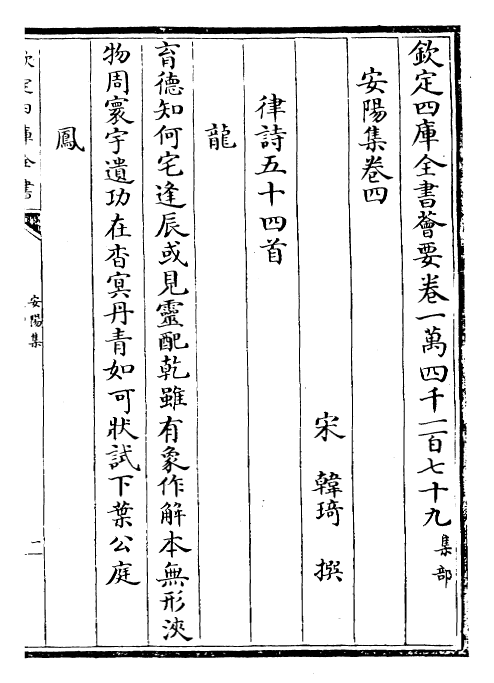 欽定四庫全書薈要卷一萬四千二百七十九集部
安陽集卷四
宋韓琦撰
律詩五十四首
龍
育德知何宅逢辰或見靈配乾雖有象作解本無形浹
物周寰宇遺功在杳冥丹青如可狀試下葉公庭
鳳
欽定四庫全書
安陽集